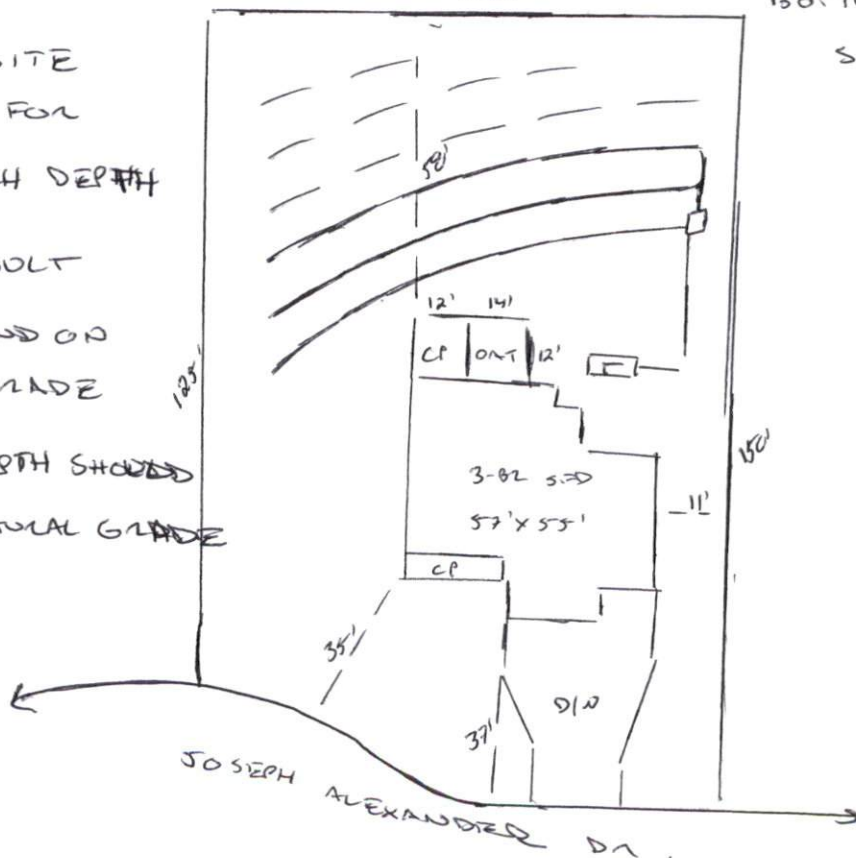 SITE
FOR
H DEPTH
ULT
ND ON
RADE
PTH SHOULD
TURAL GRADE
125'
50'
12' 14'
CP
12'
3-BR SFD
57' X 55'
11'
150'
CP
35'
37'
D/W
JOSEPH ALEXANDER DR.